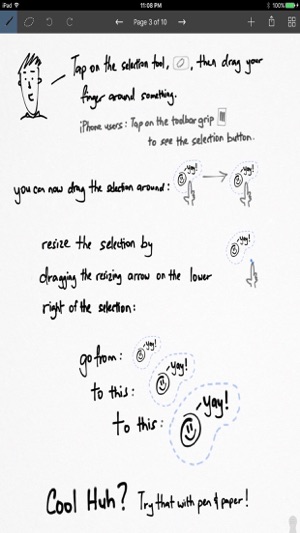 iPad
11:08 PM
100%
Page 3 of 10
Tap on the selection tool, , then drag your
finger around something.
iPhone users: Tap on the toolbar grip
to see the selection button.
yay!
yay!
you can now drag the selection around:
resize the selection by
yay!
dragging the resizing arrow on the lower
right of the selection:
go from:
yay!
to this:
yay!
to this:
yay!
Cool Huh? Try that with pen & paper!